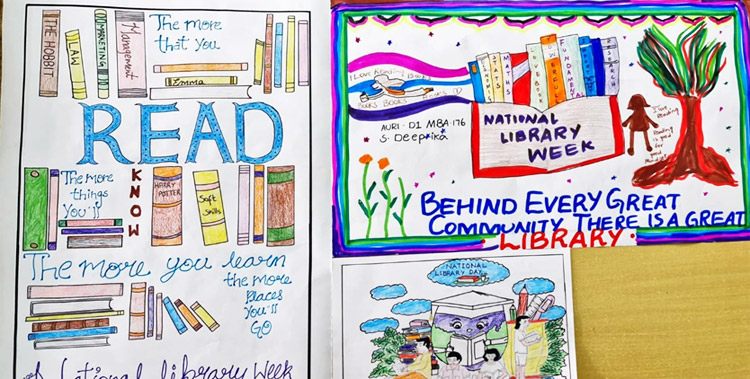 THE HOBBIT
LAW
MARKETING
Management
The more
that you
Emma
READ
The more
things
You'll
KNOW
HARRY
POTTER
Soft
Skills
The more you learn
the more
Places
You'll
GO
National Library Week
I Love Reading Books
BOOKS BOOKS BOOKS
AURI-D1 MBA-176
S. Deepika
STATS
MATHS
POWERFUL
FUNDAMENTAL
RESEARCH
NATIONAL
LIBRARY
WEEK
I Love
Reading
Reading
is good
for
good
BEHIND EVERY GREAT
COMMUNITY THERE IS A GREAT
LIBRARY.
NATIONAL
LIBRARY DAY